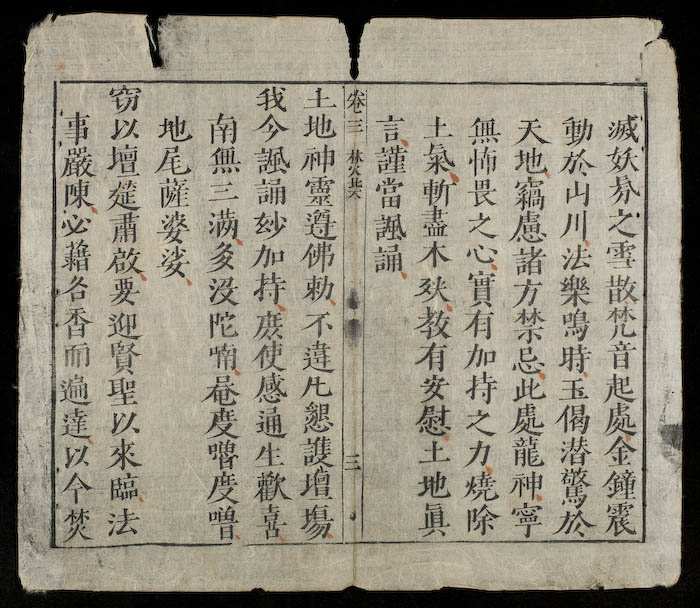 滅妖氛之雪散梵音起處金鐘震
動於山川法樂鳴時玉偈潛驚於
天地竊慮諸方禁忌此處龍神寧
無怖畏之心實有加持之力燒除
土氣斬盡木殃教有安慰土地眞
言謹當諷誦
卷三 三
土地神靈遵佛勅不違凡懇護壇塲
我今諷誦玅加持庻使感通生歡喜
南無三滿多没陀喃唵度嚕度嚕
地尾薩婆娑
窃以壇筵肅啟要迎賢聖以來臨法
事嚴陳必藉名香而遍達以今焚